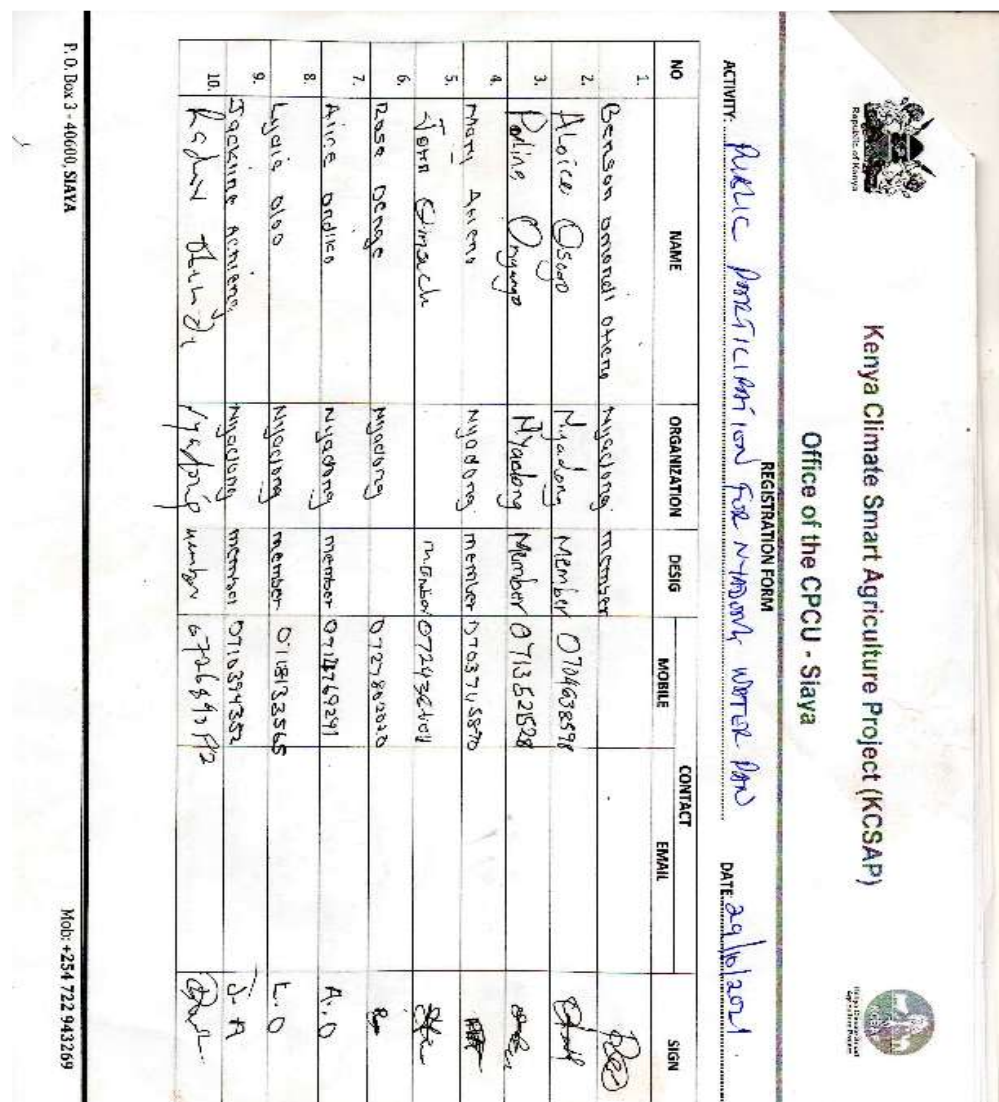 Republic of Kenya
Kenya Climate Smart Agriculture Project (KCSAP)
Office of the CPCU - Siaya
REGISTRATION FORM
ACTIVITY: PUBLIC PARTICIPATION FOR NYADONG WATER PAN DATE 29/10/2021
NO NAME ORGANIZATION DESIG CONTACT SIGN
MOBILE EMAIL
1. Benson Omondi Otieno Nyadong member
2. Aloice Osogo Nyadong Member 0704638598
3. Poline Onyango Nyadong Member 0713521528
4. Mary Atieno Nyadong member
5. John member
6. Rose Denge Nyadong 0727802020
7. Nyadong member A.O
8. Lydia Oloo Nyadong member 0718133565 L.O
9. Jackline Achieng Nyadong member 0710394352 J.A
10. member
P. O. Box 3 - 40600, SIAYA Mob: +254 722 943269